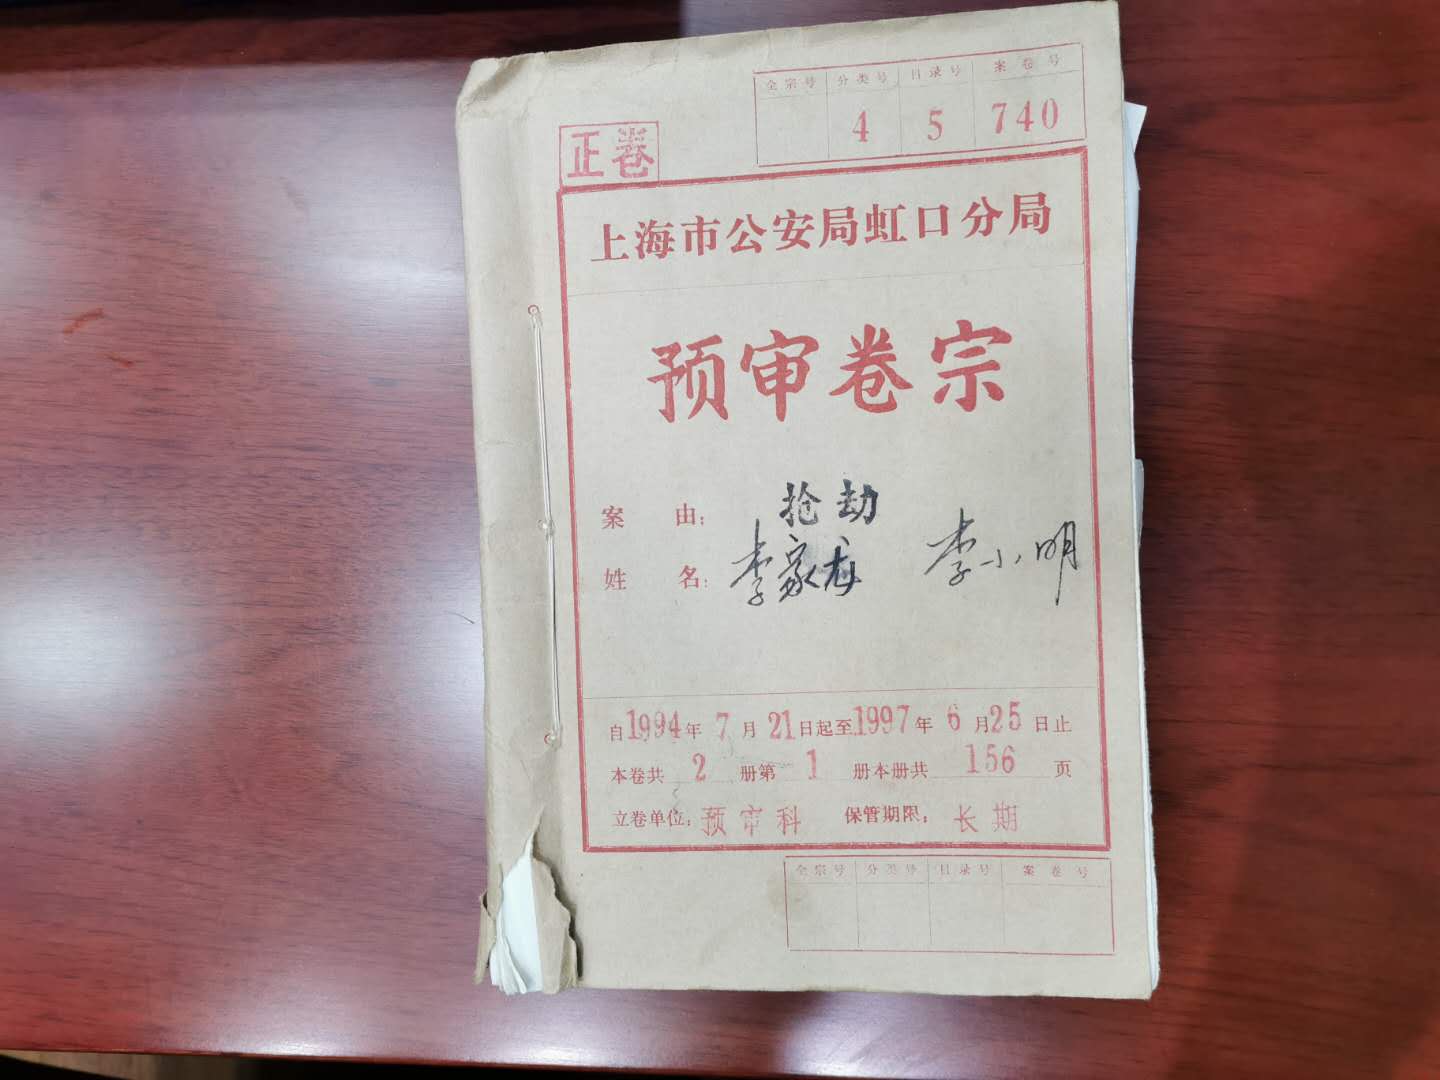 全宗号 分类号 目录号 案卷号
4 5 740
正卷
上海市公安局虹口分局
预审卷宗
案 由： 抢劫
姓 名： 李家龙 李小明
自1994年7月21日起至1997年6月25日止
本卷共2册第1册本册共156页
立卷单位：预审科 保管期限：长期
全宗号 分类号 目录号 案卷号